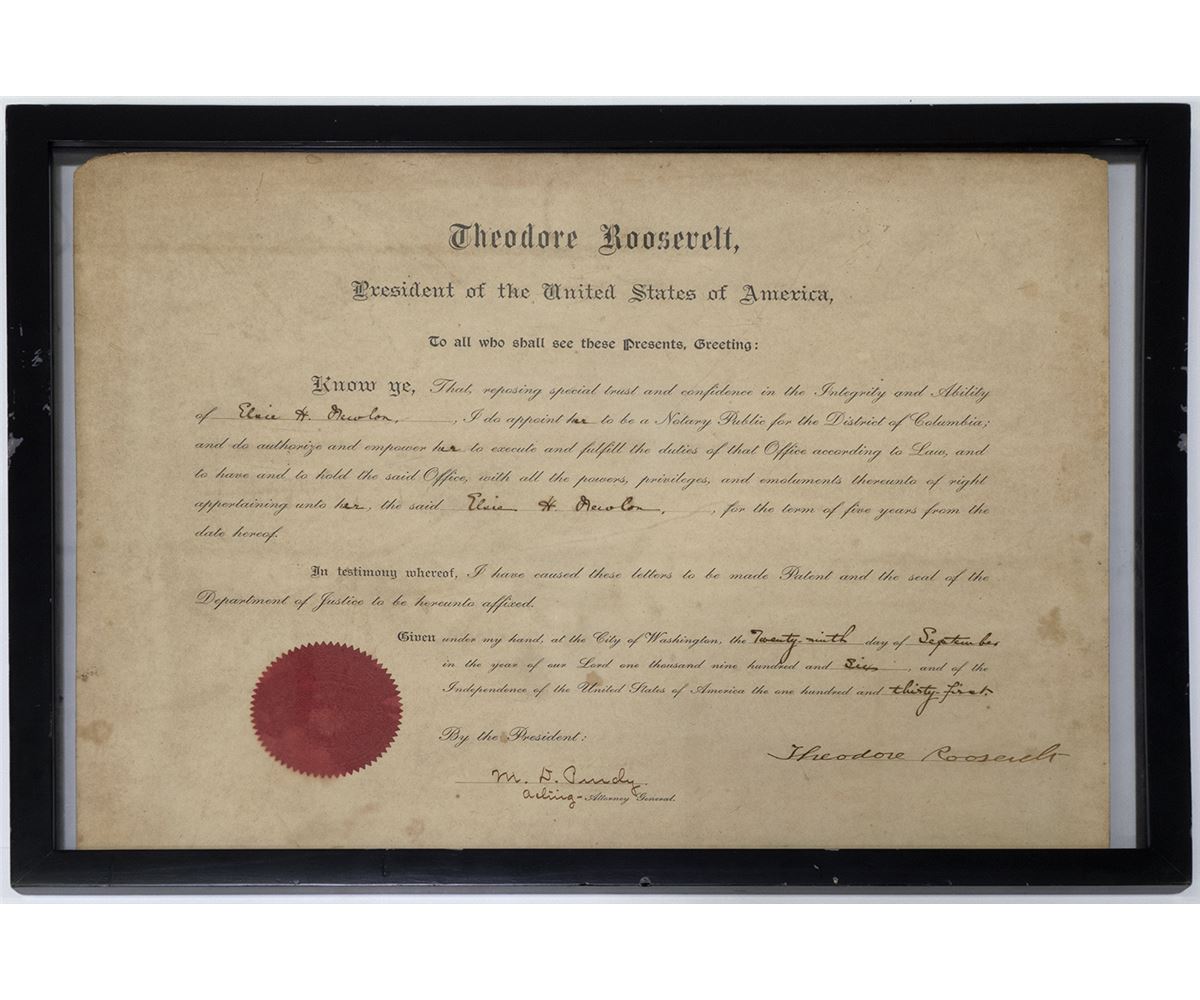 Theodore Roosevelt,
President of the United States of America,
To all who shall see these Presents, Greeting:
Know ye, That, reposing special trust and confidence in the Integrity and Ability
of Elsie H. Newlon, , I do appoint her to be a Notary Public for the District of Columbia;
and do authorize and empower her to execute and fulfill the duties of that Office according to Law, and
to have and to hold the said Office, with all the powers, privileges, and emoluments thereunto of right
appertaining unto her, the said Elsie H. Newlon, , for the term of five years from the
date hereof.
In testimony whereof, I have caused these letters to be made Patent and the seal of the
Department of Justice to be hereunto affixed.
Given under my hand, at the City of Washington, the Twenty-ninth day of September
in the year of our Lord one thousand nine hundred and six , and of the
Independence of the United States of America the one hundred and thirty-first.
By the President:
Theodore Roosevelt
M. D. Purdy
Acting- Attorney General.